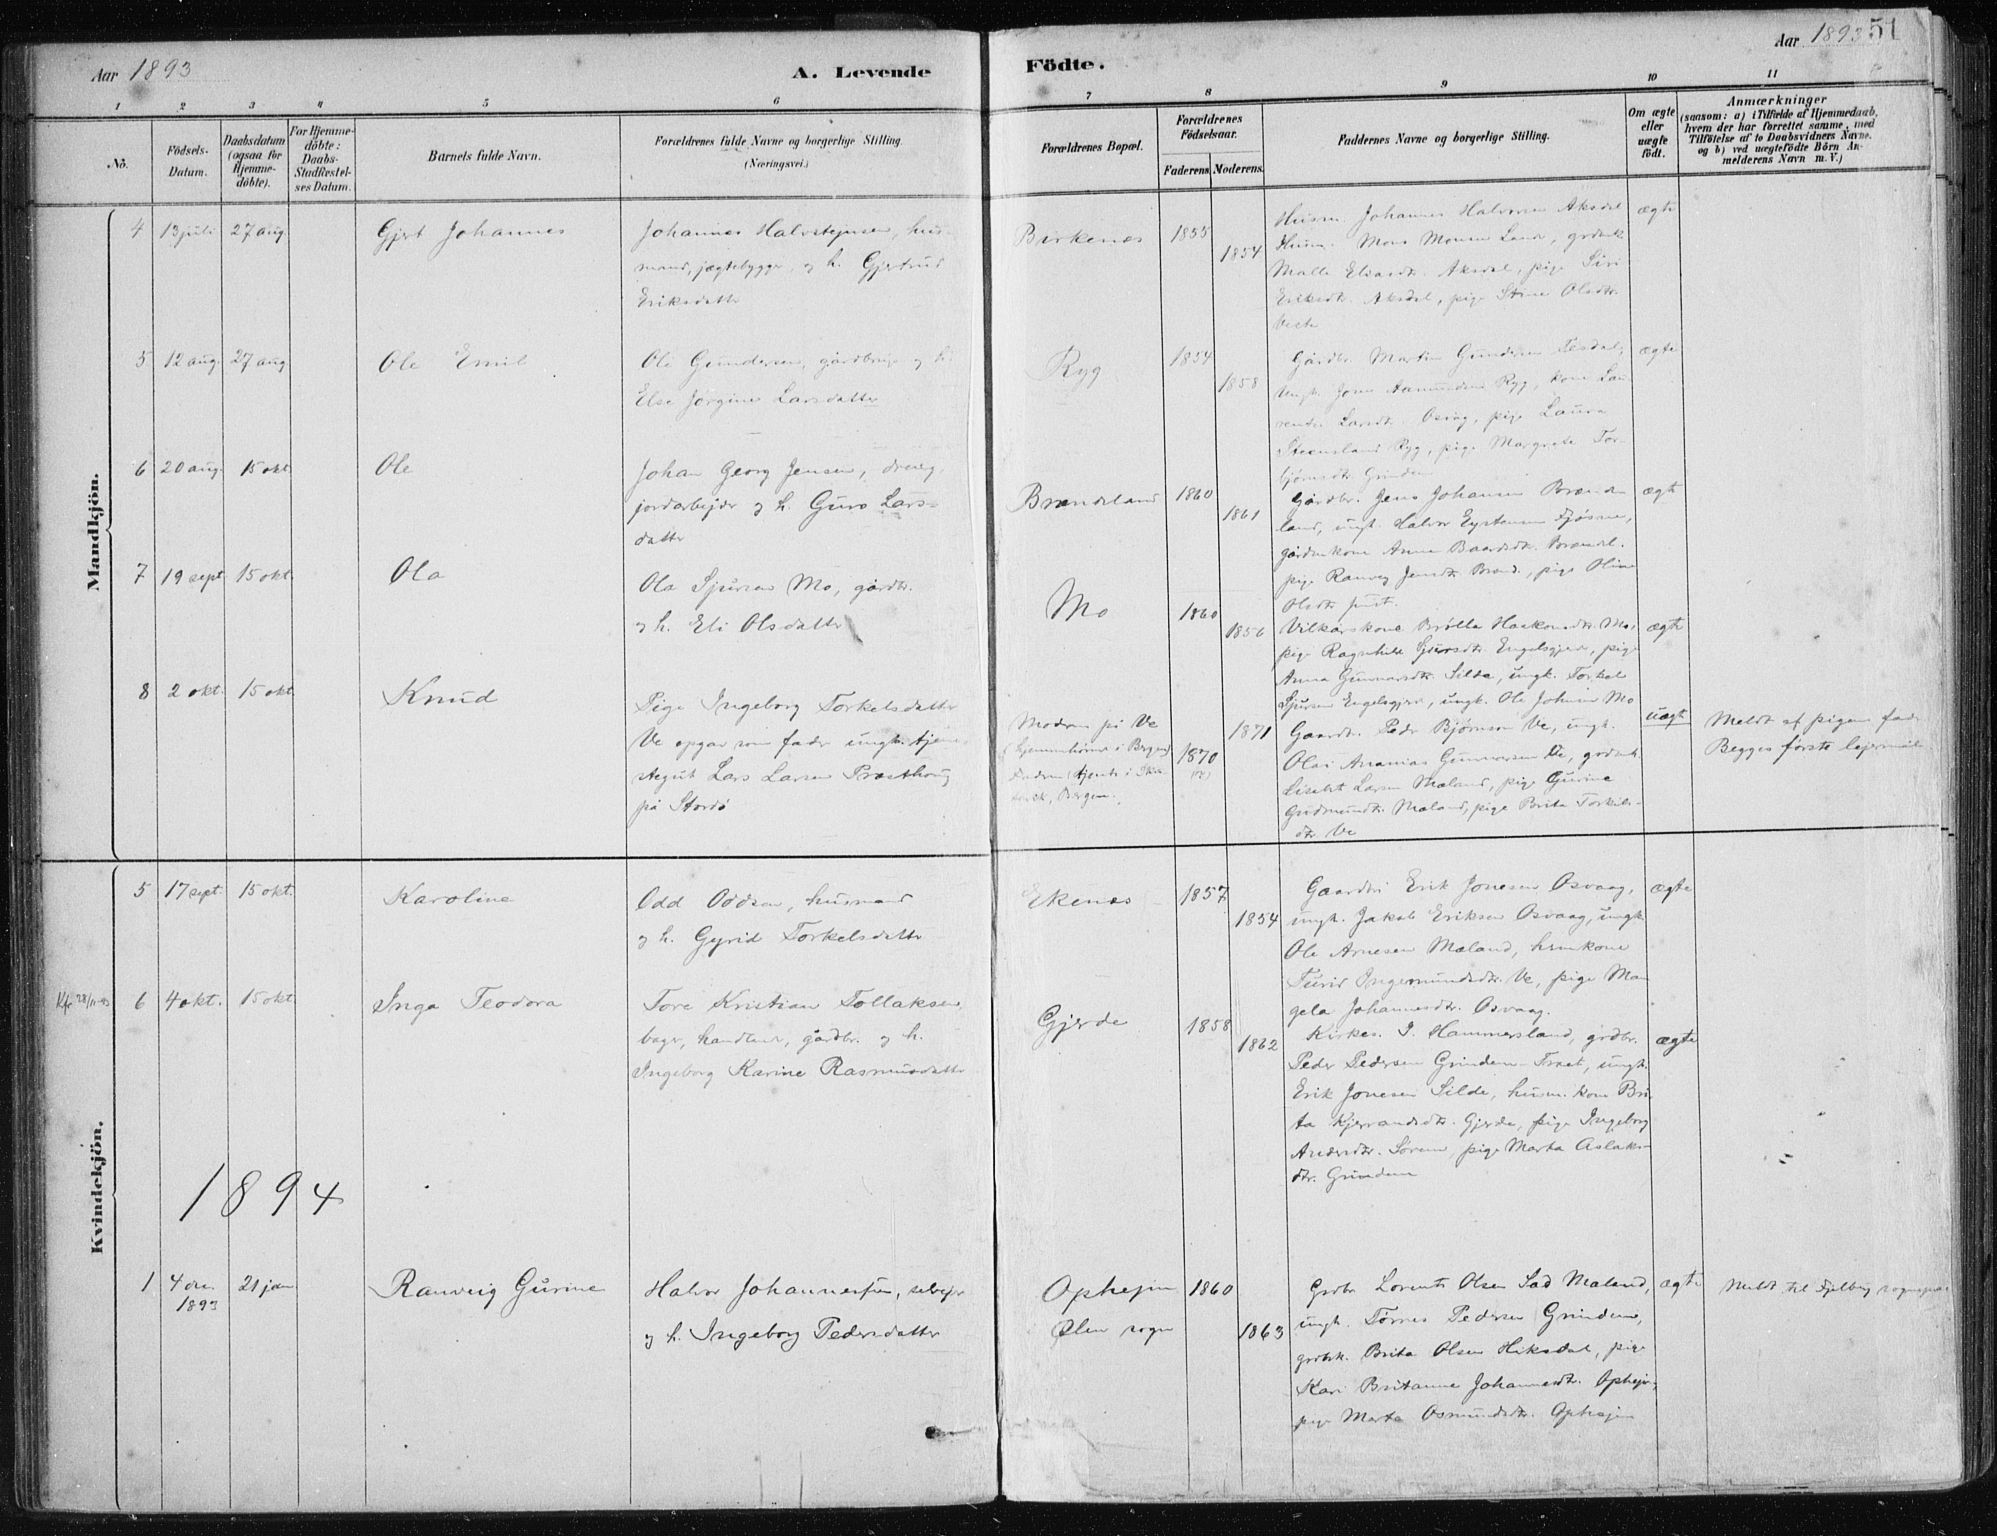 Aar 1893
A. Levende
Födte.
Aar 1893
51
1 2 3 4 5 6 7 8 9 10 11
No.
Födsels-Datum.
Daabsdatum (ogsaa for Hjemme-döbte).
For Hjemme-döbte: Daabs-Stadfæstel-ses Datum.
Barnets fulde Navn.
Forældrenes fulde Navne og borgerlige Stilling
(Næringsvei.)
Forældrenes Bopæl.
Forældrenes Födselsaar.
Faderens. Moderens.
Faddernes Navne og borgerlige Stilling.
Om ægte eller uægte födt.
Anmærkninger
(saasom: a) i Tilfælde af Hjemmedaab,
hvem der har forrettet samme, med
Tilföielse af to Daabsvidners Navne.
og b) ved uægtefödte Börn An-
melderens Navn m. V.)
Mandkjön.
4 13 juli 27 aug. Gjert Johannes
Johannes Halvstejnsen, hus-
mand, jægtebygger, og h. Gjertrud
Eriksdatter
Birkenes 1855 1854
Husm. Johannes Halvorsen Aksdal
Husm. Mons Monsen Land, grdmk
Malle Eliasdtr. Aksdal, pige Siri
Eriksdtr. Aksdal, pige Stine Olsdtr.
ægte
5 12 aug. 27 aug Ole Emil
Ole Gundersen, gårdbruger og h.
Else Jørgine Larsdatter
Ryg 1854 1858
Gårdbr. Martin Gundersen
ungk. Jon Aamundsen Ryg, kone Lau-
rentse Larsdtr. Osvåg, pige Laura
Steensland Ryg, pige Margrete Tor-
bjørnsdtr. Grindem
ægte
6 20 aug. 15 okt Ole
Johan Georg Jensen, dreng,
jordarbejder og h. Guro Lars-
datter
Brændeland 1860 1861
Gårdbr. Jens Johansen Brænde-
land, ungk. Halvor Eystensen Fjøsne,
gårdmkone Anna Baardsdtr. Brændel.
pige Ranveg Jensdtr. Brænd., pige Oline
Olsdtr.
ægte
7 19 sept. 15 okt. Ola
Ola Sjursen Mo, gårdbr.
og h. Eli Olsdatter
Mo 1860 1856
Vilkårskone Brølla Haakonsdtr. Mo,
pige Ragnhild Sjursdtr. Engelsgjerd, pige
Anna Gunnarsdtr. Silde, ungk. Torkel
Sjursen Engelsgjerd, ungk. Ole Johnsen Mo
ægte
8 2 okt. 15 okt. Knud
Pige Ingeborg Torkelsdatter
Ve opgav som fader ungk. tjene-
stegut Lars Larsen Præsthoug
på Stordø
Modern på Ve
(hjemmehörend i Bergen)
Fadern tjente i
Bergen.
1870 1871
Gaardbr. Peder Bjørnsen Ve, ungk.
Olai Ananias Gunnarsen Ve, grdmk
Lisabet Larsen Mæland, pige Gurine
Gudmundsdtr. Mæland, pige Brita Torkels-
dtr. Ve
uægte
Meldt af pigens fader
Begges første lejermål
Kvindekjön.
5 17 sept. 15 okt. Karoline
Odd Oddsen, husmand
og h. Gyrid Torkelsdatter
Ekenes 1857 1854
Gaardbr. Erik Jonesen Osvaag,
ungk. Jakob Eriksen Osvaag, ungk.
Ole Arnesen Mæland, husmkone
Turid Ingemundsdtr. Ve, pige Man-
gela Johannesdtr. Osvaag.
ægte
6 4 okt. 15 okt. Inga Teodora
Tore Kristian Tollaksen,
bager, handlende, gårdbr. og h.
Ingeborg Karine Rasmusdatter
Gjerde 1858 1862
Kirkes. I. Hammersland, grdbr.
Peder Pedersen Grindem Træet, ungk.
Erik Jonesen Silde, husm. kone Bri-
ta Kjerrandsdtr. Gjerde, pige Ingeborg
Andersdtr. Sørem, pige Marta Aslaks-
dtr. Grindem
ægte
1894
1 4 dec. 1893 21 jan Ranveig Gurine
Halvor Johannessen, selvejer
og h. Ingeborg Pedersdatter
Ophejm
Ølen sogn
1860 1863
Grdbr Lorents Olsen Sad Mæland,
ungk. Tørres Pedersen Grindem,
grdbrk. Brita Olsen Hiksdal, pige
Kari Britanne Johannesdtr. Ophejm,
pige Marta Osmundsdtr. Ophejm
ægte
Meldt til Fjelberg sogneprest